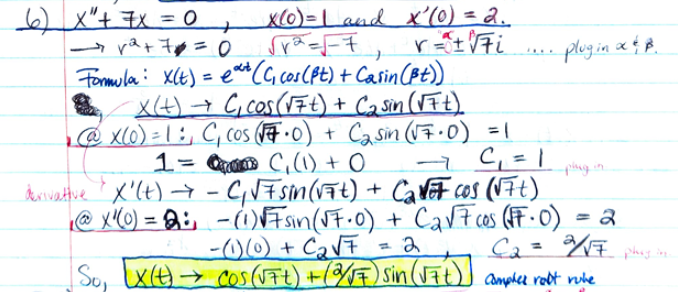 6) x″ + 7x = 0 , x(0)=1 and x′(0) = 2.
→ r² + 7 = 0 √r² = √-7 , r = 0 ± √7i .... plug in α & β.
Formula: x(t) = e^αt (C₁ cos(βt) + C₂ sin(βt))
x(t) → C₁ cos(√7t) + C₂ sin(√7t)
@ x(0)=1: C₁ cos(√7·0) + C₂ sin(√7·0) = 1
1 = C₁(1) + 0 → C₁ = 1 plug in
derivative x′(t) → - C₁√7 sin(√7t) + C₂√7 cos(√7t)
@ x′(0) = 2: -(1)√7 sin(√7·0) + C₂√7 cos(√7·0) = 2
-(1)(0) + C₂√7 = 2 , C₂ = 2/√7 plug in
So, x(t) → cos(√7t) + (2/√7) sin(√7t) complex root rule